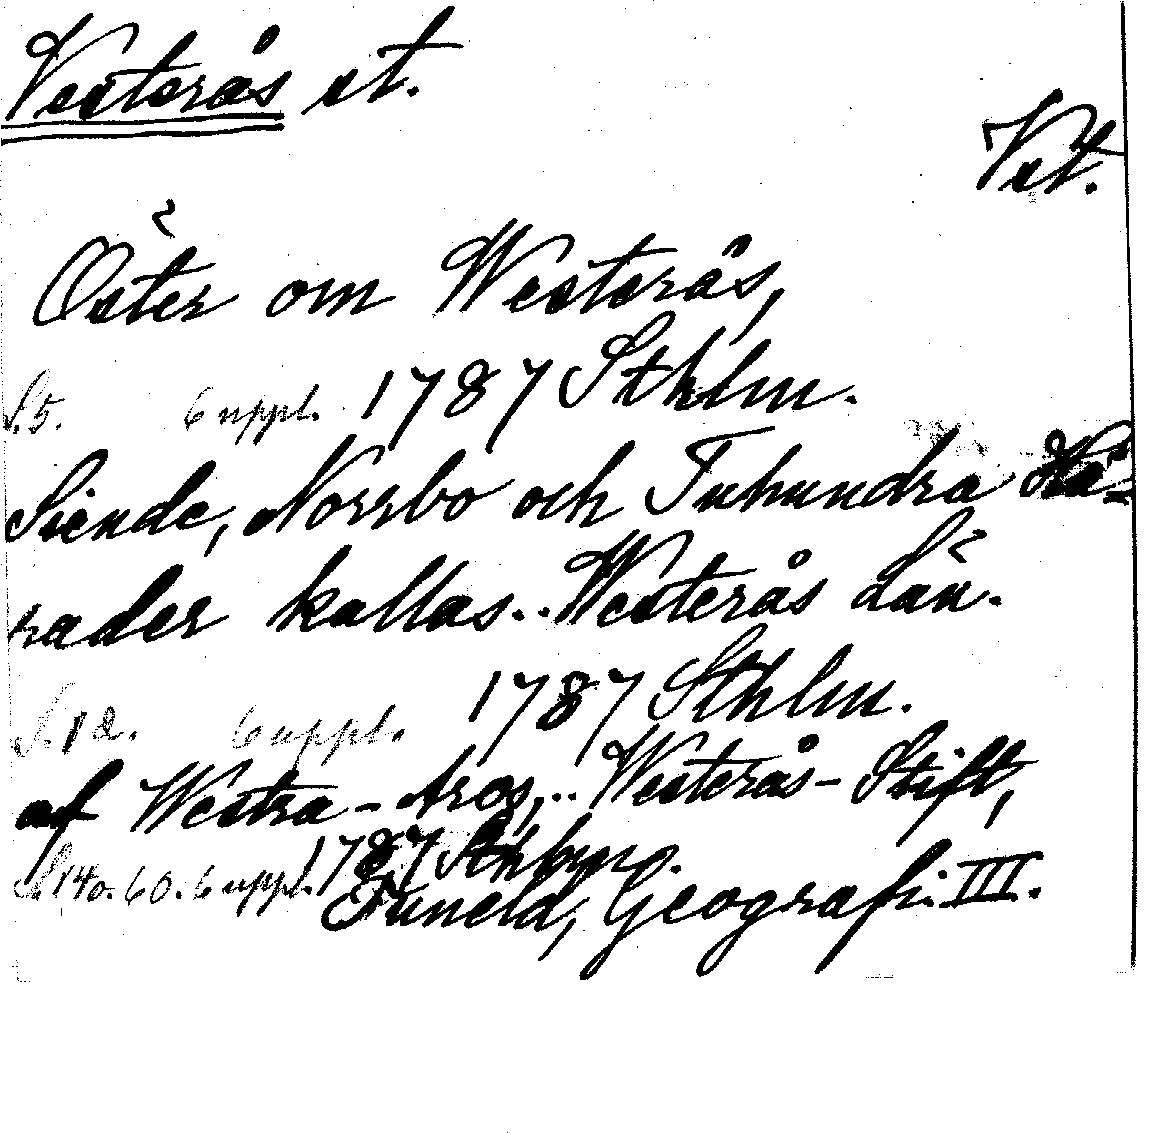 Vesterås st.
Vst.
Öster om Westerås,
S. 5. 6 uppl. 1787 Sthlm.
Siende, Norrbo och Tuhundra Hä-
rader kallas.. Westerås Län.
S. 12. 6 uppl. 1787 Sthlm.
af Westra-Aros,.. Westerås-Stift,
S. 14 o. 60. 6 uppl. 1787 Sthlm.
Tuneld, Geografi. III.